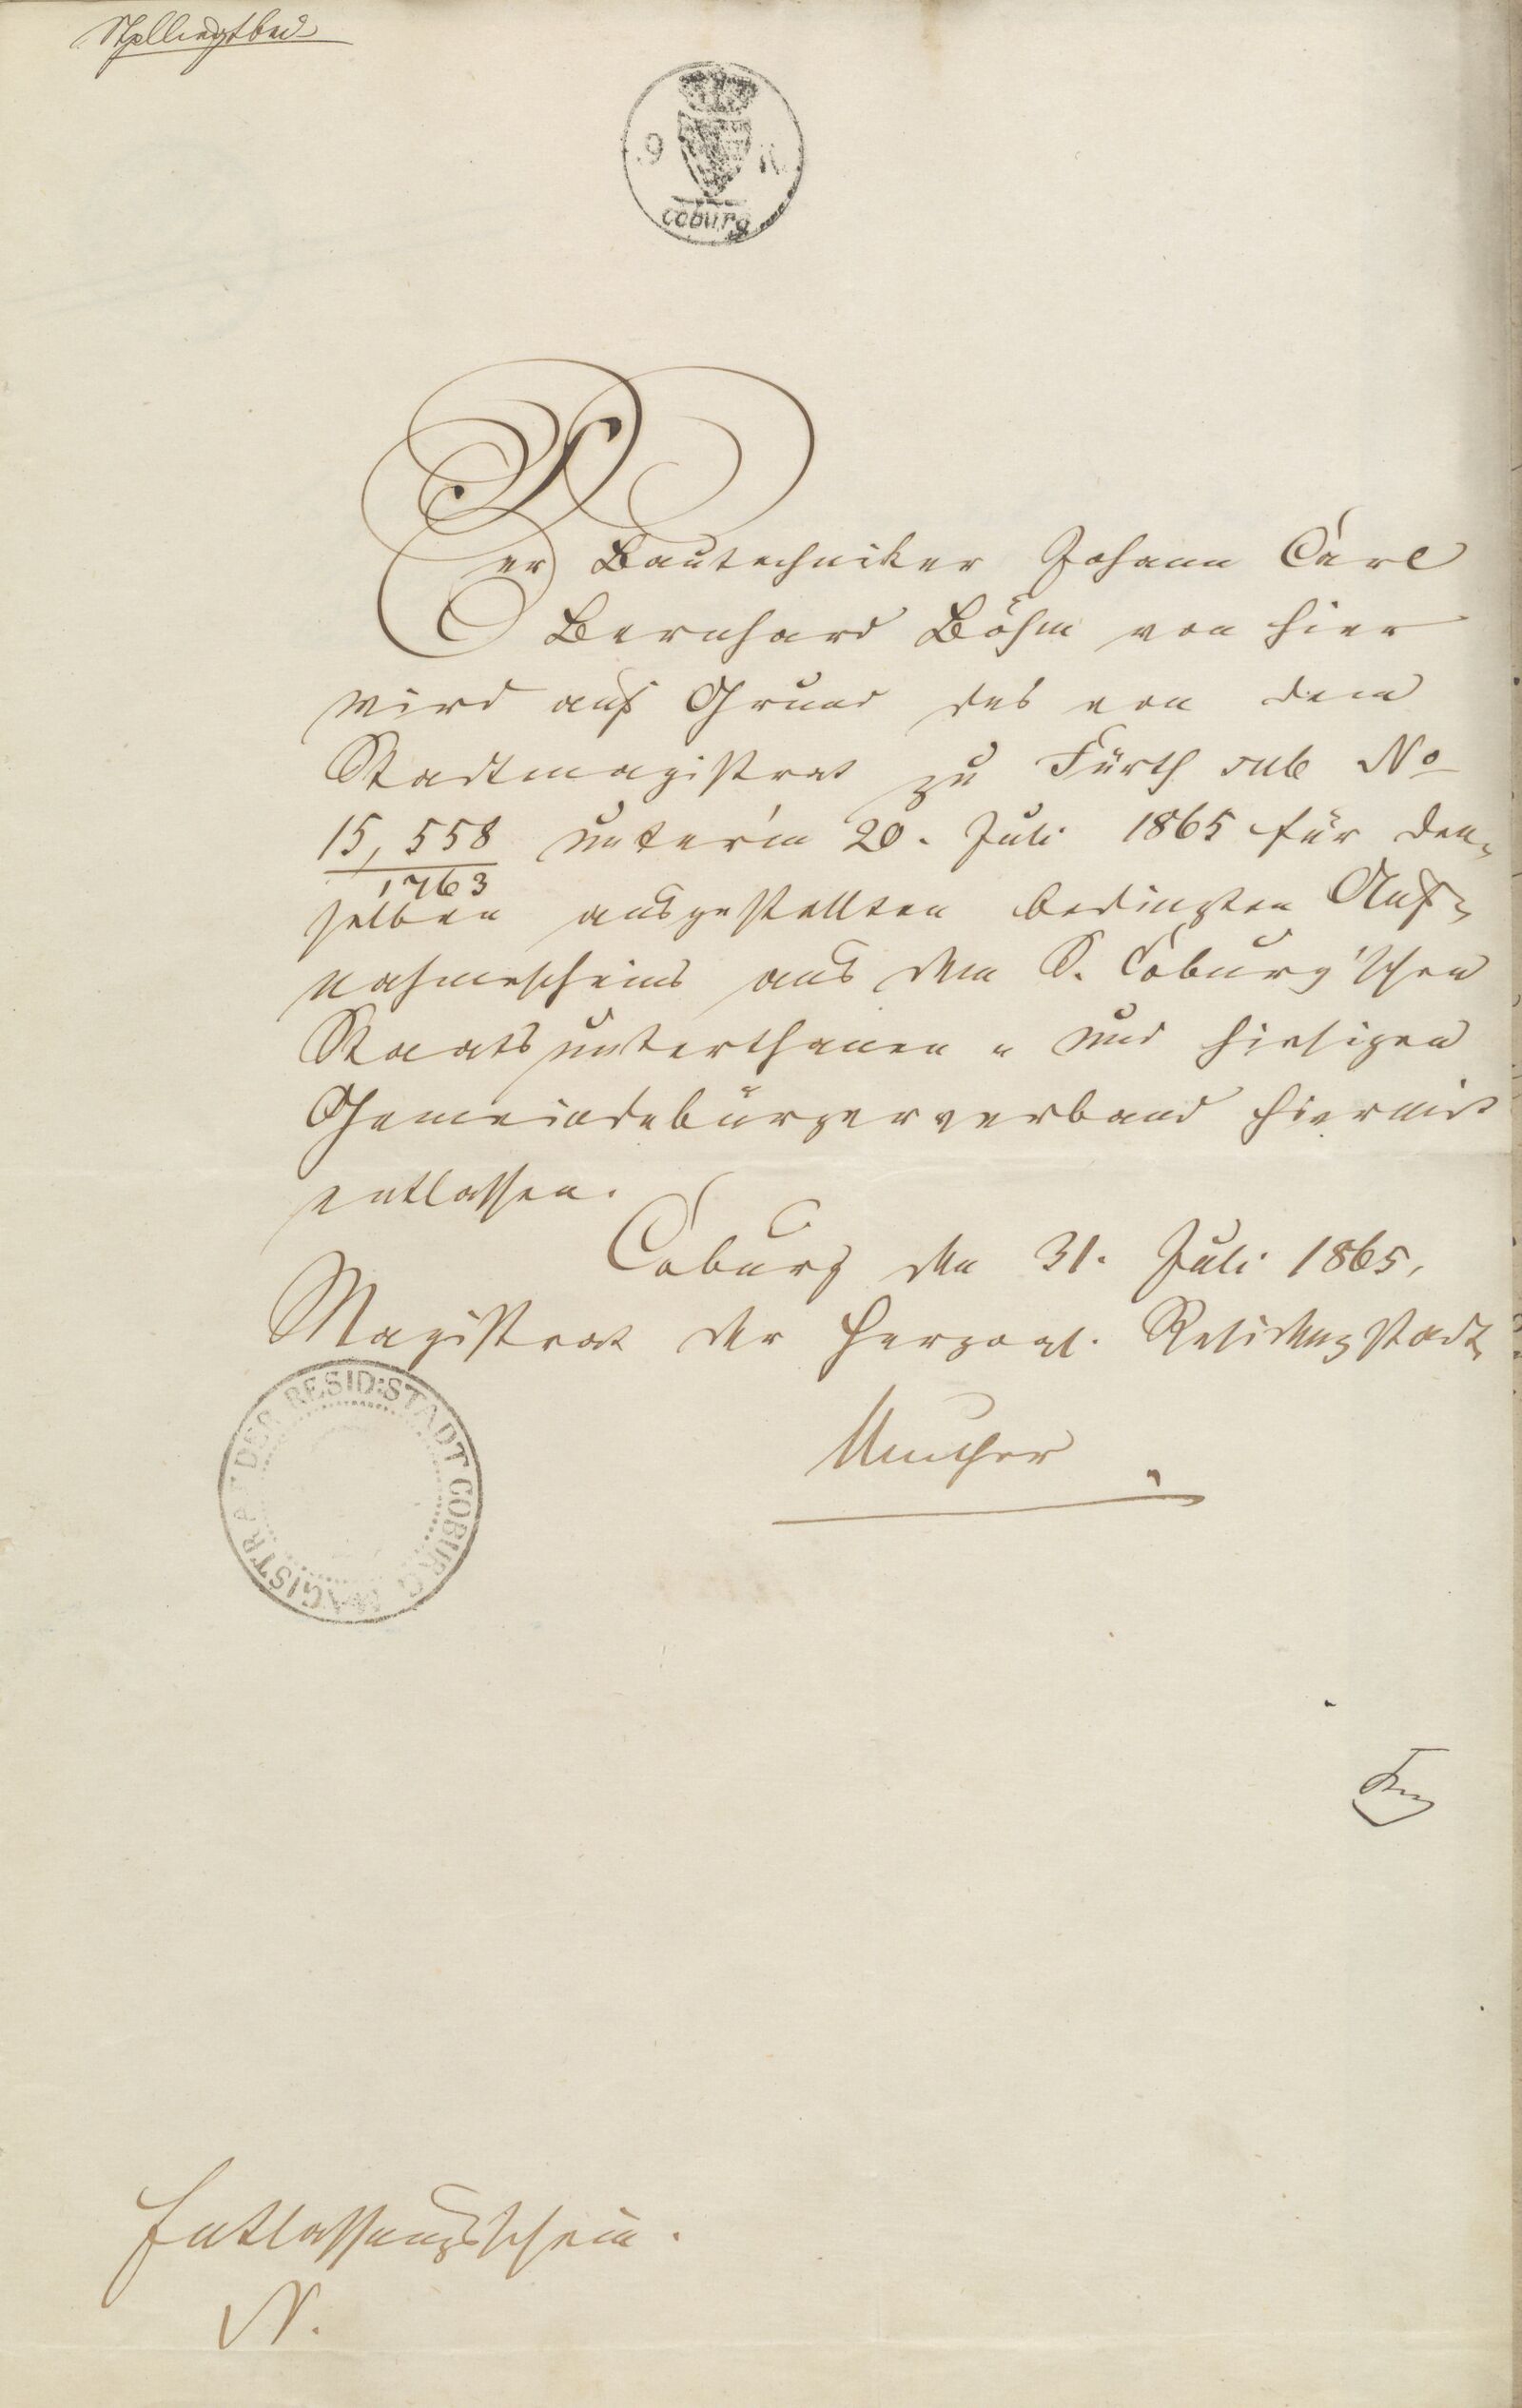 9 K.
coburg
Der Bautechniker Johann Carl
Bernhard Böhm von hier
wird auf Grund des von dem
Stadtmagistrat zu Fürth sub No
15,558 unter'm 20. Juli 1865 für den-
1763
selben ausgestellten bedingten Auf-
nahmescheins aus dem S. Coburg'schen
Staatsunterthanen- und hiesigen
Gemeindebürgerverband hiermit
entlassen.
Coburg den 31. Juli 1865.
Magistrat der Herzogl. Residenzstadt
Muther
MAGISTRAT DER RESID:STADT COBURG
Entlassungsschein.
N.